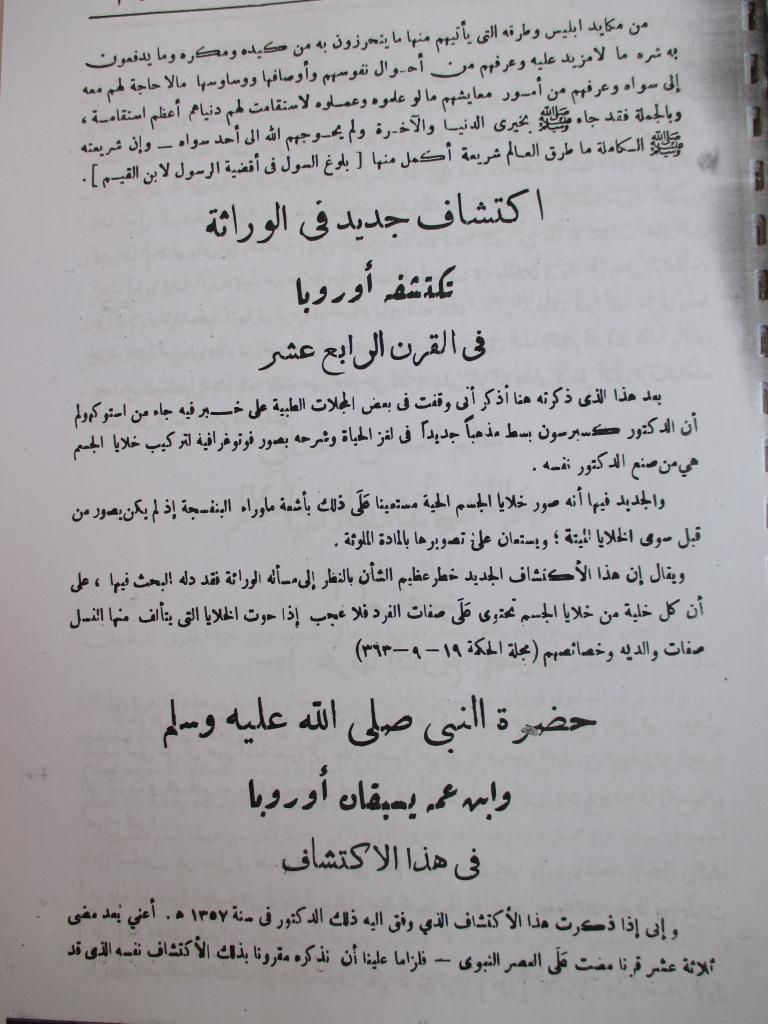 من مكايد ابليس وطرقه التى يأتيهم منها ما يتحرزون به من كيده ومكره وما يدفعون
به شره ما لا مزيد عليه وعرفهم من أحوال نفوسهم وأوصافها ووساوسها مالا حاجة لهم معه
إلى سواه وعرفهم من أمور معايشهم ما لو علموه وعملوه لاستقامت لهم دنياهم أعظم استقامة ،
وبالجملة فقد جاء ﷺ بخيرى الدنيا والآخرة ولم يحوجهم الله الى أحد سواه — وإن شريعته
ﷺ الكاملة ما طرق العالم شريعة أكمل منها [ بلوغ السول فى أقضية الرسول لابن القيم ] .
اكتشاف جديد فى الوراثة
تكتشفه أوروبا
فى القرن الرابع عشر
بعد هذا الذى ذكرته هنا أذكر أنى وقفت فى بعض المجلات الطبية على خبر فيه جاء من استوكهولم
أن الدكتور كسبرسون بسط مذهباً جديداً فى لغز الحياة وشرحه بصور فوتوغرافيه لتركيب خلايا الجسم
هي من صنع الدكتور نفسه .
والجديد فيها أنه صور خلايا الجسم الحية مستعينا على ذلك بأشعة ماوراء البنفسجة إذ لم يكن يصور من
قبل سوى الخلايا الميتة ؛ ويستعان على تصويرها بالمادة الملوثة .
ويقال إن هذا الأكتشاف الجديد خطر عظيم الشأن بالنظر إلى مسأله الوراثة فقد دله البحث فيها ، على
أن كل خلية من خلايا الجسم تحتوى على صفات الفرد فلا عجب إذا حوت الخلايا التى يتألف منها النسل
صفات والديه وخصائصهم (مجلة الحكمة ١٩ – ٩ – ٣٦٣)
حضرة النبى صلى الله عليه وسلم
وابن عمه يسبقان أوروبا
فى هذا الاكتشاف
و إنى إذا ذكرت هذا الأكتشاف الذي وفق اليه ذلك الدكتور فى سنة ١٣٥٧ ه . أعني بعد مضى
ثلاثة عشر قرنا مضت على العصر النبوى — فلزاما علينا أن نذكره مقرونا بذلك الأكتشاف نفسه الذى قد